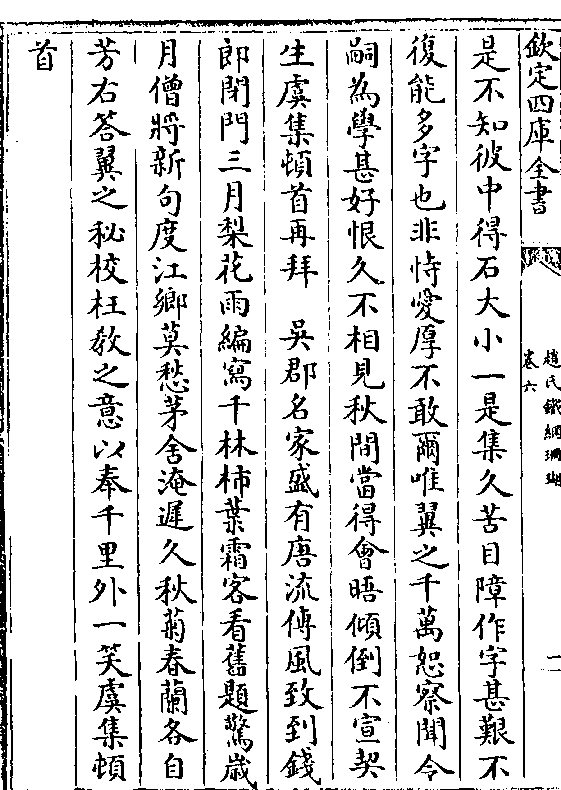 欽定四庫全書
趙氏鐵網珊瑚
卷六
二
是不知彼中得石大小一是集久苦目障作字甚艱不
復能多字也非恃愛厚不敢爾唯翼之千萬恕察聞令
嗣為學甚好恨久不相見秋間當得會晤傾倒不宣契
生虞集頓首再拜　吳郡名家盛有唐流傳風致到錢
郎閉門三月梨花雨編寫千林柿葉霜客看舊題驚歲
月僧將新句度江鄉莫愁茅舍淹遲久秋菊春蘭各自
芳右答翼之秘校枉教之意以奉千里外一笑虞集頓
首